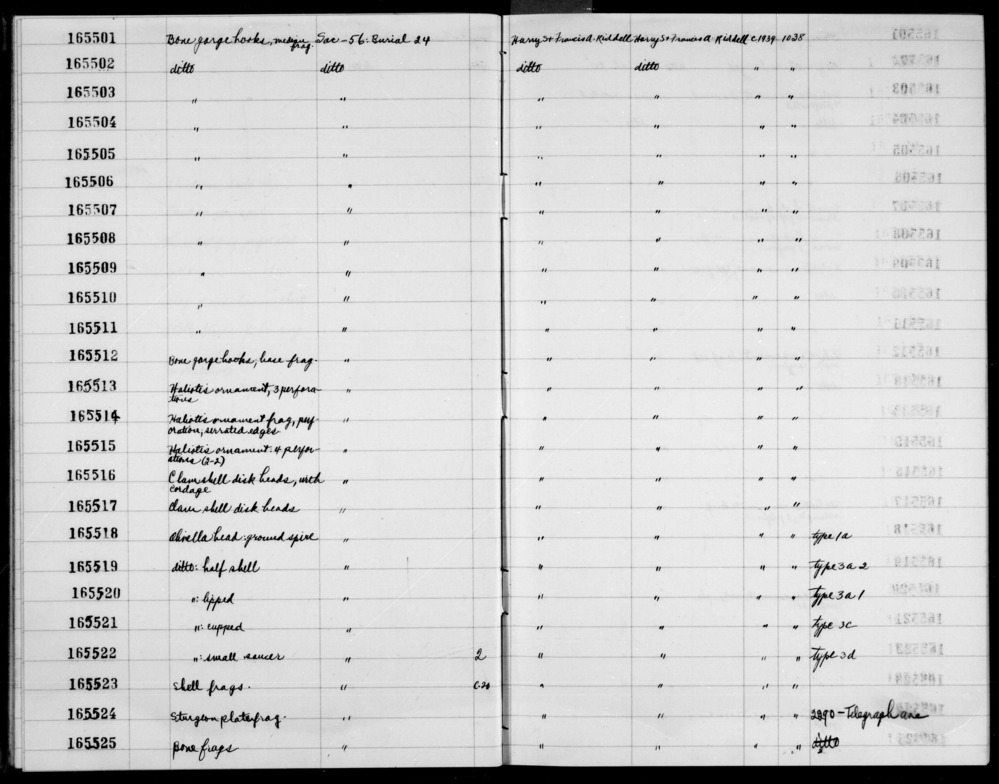 165501 Bone gorge hooks, median frag. Sac-56: Burial 24 Harry St Francis A. Riddell Harry St Francis A Riddell c.1939 1038
165502 ditto ditto ditto ditto " "
165503 " " " " " "
165504 " " " " " "
165505 " " " " " "
165506 " " " " " "
165507 " " " " " "
165508 " " " " " "
165509 " " " " " "
165510 " " " " " "
165511 " " " " " "
165512 Bone gorge hooks, base frag. " " " " "
165513 Haliotis ornament, 3 perfora-
tions " " " " "
165514 Haliotis ornament frag, perf-
oration, serrated edges " " " " "
165515 Haliotis ornament: 4 perfor-
ations (2-2) " " " " "
165516 Clam shell disk beads, with
cordage " " " " "
165517 Clam shell disk beads " " " " "
165518 Olivella bead: ground spire " " " " " type 1a
165519 ditto: half shell " " " " " type 3a 2
165520 ": lipped " " " " " type 3a 1
165521 ": cupped " " " " " type 3c
165522 ": small saucer " 2 " " " " type 3d
165523 Shell frags. " C.26 " " " "
165524 Sturgeon plate frag. " " " " " 2290-Telegraph ave
165525 Bone frags " " " " " ditto